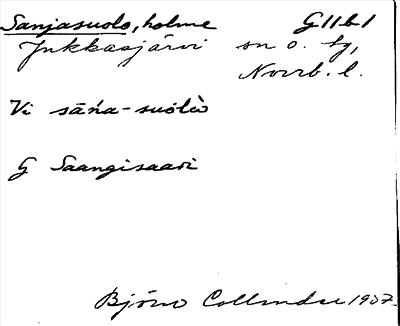 Sanjasuolo, holme G11b1
Jukkasjärvi sn o. tg,
Norrb. l.
Vi sāńa-suolo
G Saangisaari
Björn Collinder 1907